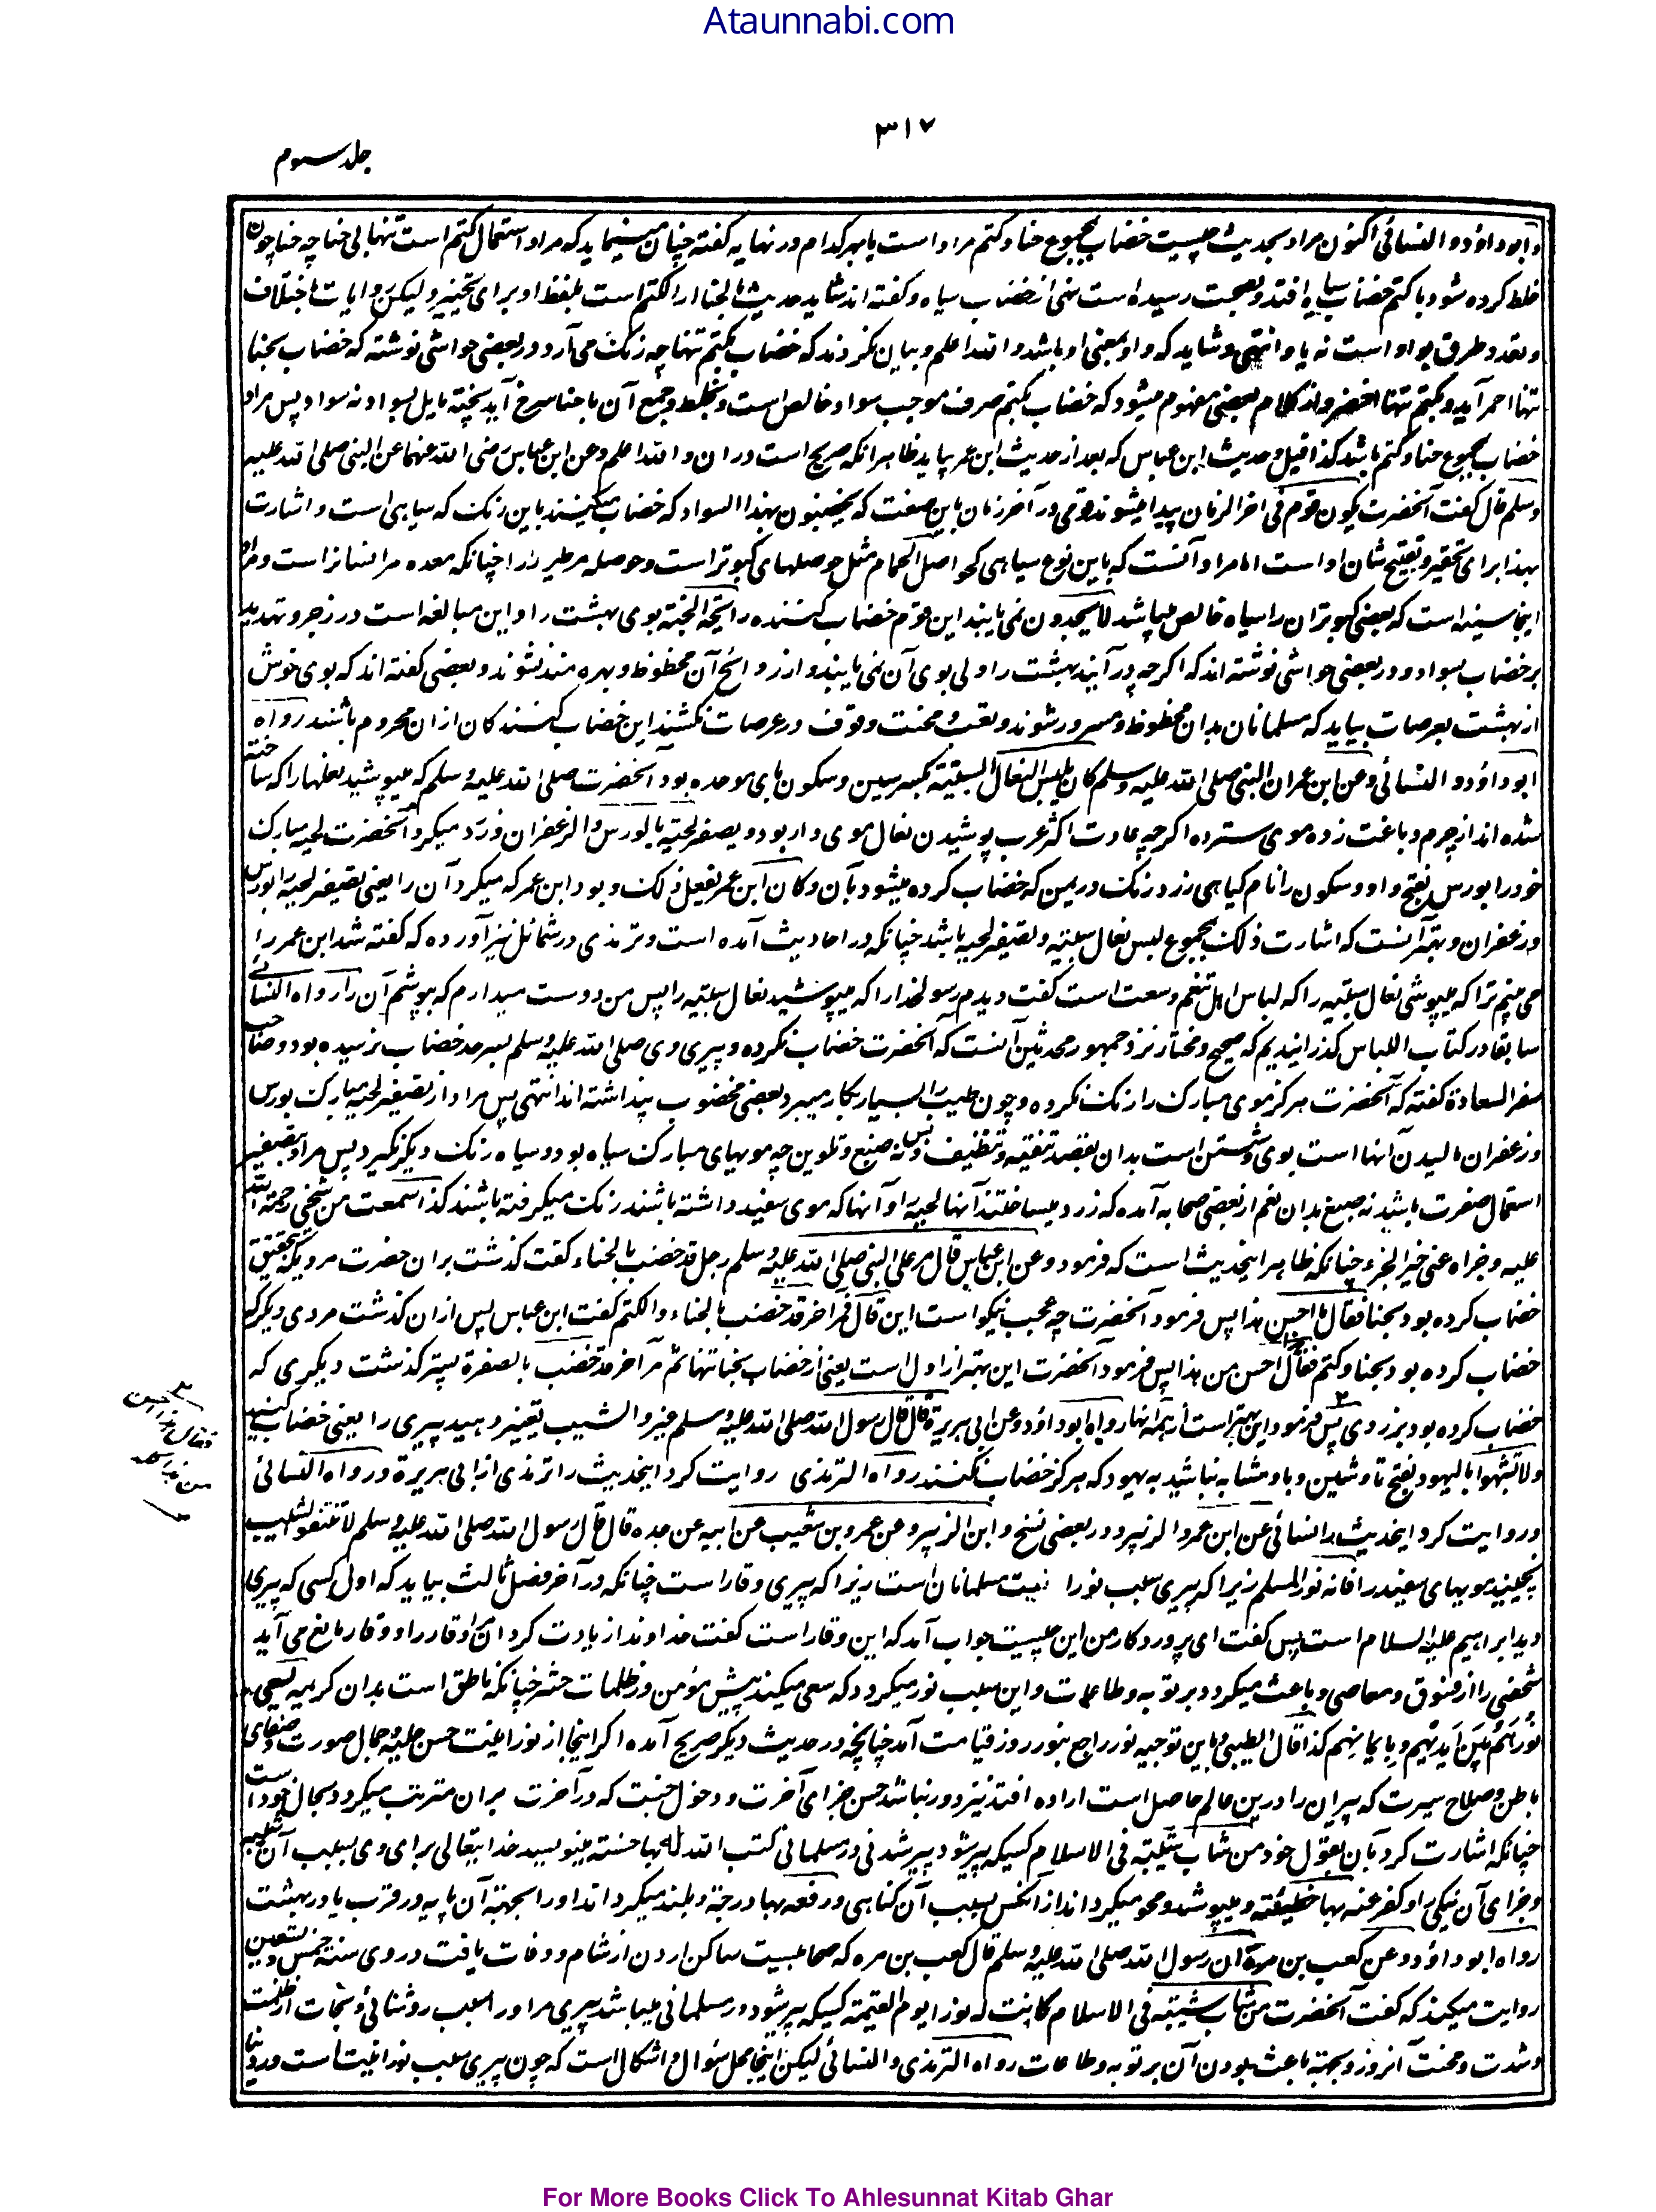 Ataunnabi.com
۳۱۷
جلد سوم
و ابو داؤد و النسائی اکنون مراد بحدیث چیست خضاب بمجموع حنا و کتم مراد است یا بهر کدام در نهایه گفته چنان مینماید که مراد استعمال کتم است تنها بی حنا چه حنا چون
خلط کرده شود با کتم خضاب سیاه افتد و بصحت رسیده است نهی از خضاب سیاه و گفته اند شاید حدیث بالحنا او الکتم است بلفظ او برای تخییر و لیکن روایات باختلاف
و تعدد طرق بواو است نه یا و انتهی و شاید که واو بمعنی او باشد و الله اعلم و بیان نکردند که خضاب بکتم تنها چه رنگ می آرد و در بعضی حواشی نوشته که خضاب بحنا
تنها احمر آید و بکتم تنها اخضر و از کلام بعضی مفهوم میشود که خضاب بکتم صرف موجب سواد خالص است و بخلط و جمع آن با حنا سرخ آید پخته مایل بسواد نه سواد پس مراد
خضاب بمجموع حنا و کتم باشد کذا قیل و حدیث ابن عباس که بعد از حدیث ابن عمر بیاید ظاهرا نکه صریح است در ان و الله اعلم وعن ابن عباس رضی الله عنهما عن النبی صلی الله علیه
وسلم قال گفت آنحضرت یکون قوم فی اخر الزمان پیدا میشوند قومی در آخر زمان باین صفت که یخضبون بهذا السواد که خضاب میکنند باین رنگ که سیاهی است و اشارت
بهذا برای تحقیر و تقبیح شان او است اما مراد آنست که باین نوع سیاهی کحواصل الحمام مثل حوصلهای کبوتر است و حوصله مر طیر را چنانکه معده مر انسانرا است و مراد
اینجا سینه است که بعضی کبوتران را سیاه خالص میباشد لا یجدون نمی یابند این قوم خضاب کننده رائحة الجنة بوی بهشت را و این مبالغه است در زجر و تهدید
بر خضاب بسواد و در بعضی حواشی نوشته اند که اگرچه در آیند بهشت را ولی بوی آن نمی یابند و از روائح آن محظوظ و بهره مند نشوند و بعضی گفته اند که بوی خوش
از بهشت بعرصات بیاید که مسلمانان بدان محظوظ و مسرور شوند و تعب و محنت وقوف در عرصات نکشند این خضاب کنندگان از ان محروم باشند رواه
ابو داؤد و النسائی وعن ابن عمر ان النبی صلی الله علیه وسلم کان یلبس النعال السبتیة بکسر سین و سکون بای موحده بود آنحضرت صلی الله علیه وسلم که میپوشید نعلها را که ساخته
شده اند از چرم دباغت زده موی سترده اگرچه عادت اکثر عرب پوشیدن نعال موی دار بود و یصفر لحیته بالورس والزعفران و زرد میکرد آنحضرت لحیه مبارک
خود را بورس بفتح واو و سکون را نام گیاهی زرد رنگ در یمن که خضاب کرده میشود بآن وکان ابن عمر یفعل ذلک و بود ابن عمر که میکرد آن را یعنی تصفیر لحیه را بورس
و زعفران و بهتر آنست که اشارت ذلک بمجموع لبس نعال سبتیه و تصفیر لحیه باشد چنانکه در احادیث آمده است و ترمذی در شمائل نیز آورده که گفته شد ابن عمر را
می بینم ترا که میپوشی نعال سبتیه را که لباس اهل تنعم و سعت است گفت دیدم رسولخدا را که میپوشید نعال سبتیه را پس من دوست میدارم که بپوشم آن را رواه النسائی
سابقا در کتاب اللباس گذرانیدیم که صحیح و مختار نزد جمهور محدثین آنست که آنحضرت خضاب نکرده و پیری وی صلی الله علیه وسلم بسر حد خضاب نرسیده بود و صاحب
سفر السعادة گفته که آنحضرت هرگز موی مبارک را رنگ نکرده و چون طیب را بسیار بکار میبرد بعضی مخضوب پنداشته اند انتهی پس مراد از تصفیر لحیه مبارک بورس
و زعفران مالیدن آنها است بوی و شستن است بدان بقصد تنقیه و تنظیف نه صبغ و تلوین چه مویهای مبارک سیاه بود و سیاه رنگ دیگر نگیرد پس مراد بتصفیر
استعمال صفرت باشد نه صبغ بدان نعم از بعضی صحابه آمده که زرد میساختند آنها لحیه را و آنها که موی سفید داشته باشند رنگ میگرفته باشند کذا سمعت من شیخی رحمة الله
علیه وجزاه عنی خیر الجزاء چنانکه ظاهر اینحدیث است که فرمود وعن ابن عباس قال مر علی النبی صلی الله علیه وسلم رجل قد خضب بالحناء گفت گذشت بران حضرت مردیکه بتحقیق
خضاب کرده بود بحنا فقال ما احسن هذا پس فرمود آنحضرت چه عجب نیکو است این قال فمر اخر قد خضب بالحناء والکتم گفت ابن عباس پس از ان گذشت مردی دیگر که
خضاب کرده بود بحنا و کتم فقال هذا احسن من هذا پس فرمود آنحضرت این بهتر از اول است یعنی از خضاب بحنا تنها ثم مر آخر قد خضب بالصفرة پستر گذشت دیگری که
خضاب کرده بود بزردی پس فرمود این بهتر است از همه آنها رواه ابو داؤد وعن ابی هریرة قال قال رسول الله صلی الله علیه وسلم غیروا الشیب تغییر دهید پیری را یعنی خضاب کنید
ولا تشبهوا بالیهود بفتح تا و شین و با و مشابه نباشید به یهود که هرگز خضاب نکنند رواه الترمذی روایت کرد اینحدیث را ترمذی از ابی هریرة ورواه النسائی
وروایت کرد اینحدیث را نسائی عن ابن عمر والزبیر و در بعضی نسخ وابن الزبیر وعن عمرو بن شعیب عن ابیه عن جده قال قال رسول الله صلی الله علیه وسلم لا تنتفوا الشیب
نچینید مویهای سفید را فانه نور المسلم زیرا که پیری سبب نورانیت مسلمانان است زیرا که پیری وقار است چنانکه در آخر فصل ثالث بیاید که اول کسی که پیری
دید ابراهیم علیه السلام است پس گفت ای پروردگار من این چیست جواب آمد که این وقار است گفت خداوندا زیادت گردان وقار را و وقار مانع می آید
شخصی را از فسوق و معاصی و باعث میگردد بر توبه و طاعات و این سبب نور میگردد که سعی میکند پیش مؤمن در ظلمات حشر چنانکه ناطق است بدان کریمه یسعی
نورهم بین ایدیهم وبایمانهم کذا قال الطیبی و باین توجیه نور راجع بنور روز قیامت آمد چنانچه در حدیث دیگر صریح آمده اگر اینجا از نورانیت حسن حلیه و جمال صورت و صفای
باطن و صلاح سیرت که پیران را درین عالم حاصل است اراده افتد نیز دور نباشد حسن جزای آخرت و دخول جنت که در آخرت بران مترتب میگردد بحال خود است
چنانکه اشارت کرد بآن بقول خود من شاب شیبة فی الاسلام کسیکه پیر شود پیر شدنی در مسلمانی کتب الله له بها حسنة مینویسد خدایتعالی برای وی بسبب آن شیبه
و جزای آن نیکی را وکفر عنه بها خطیئته و میپوشد و محو میگرداند از آنکس بسبب آن گناهی ورفعه بها درجة و بلند میگرداند او را بجهت آن پایه در قرب یا در بهشت
رواه ابو داؤد وعن کعب بن مرة ان رسول الله صلی الله علیه وسلم قال کعب بن مره که صحابیست ساکن اردن از شام و وفات یافت در وی سنه خمس و تسعین
روایت میکند که گفت آنحضرت من شاب شیبة فی الاسلام کانت له نورا یوم القیمة کسیکه پیر شود در مسلمانی میباشد پیری مر او را سبب روشنائی و نجات از ظلمت
و شدت و محنت آنروز و بجهت باعث بودن آن بر توبه و طاعات رواه الترمذی والنسائی لیکن اینجا محل سؤال و اشکال است که چون پیری سبب نورانیت است در دنیا
فقال هذا احسن
من هذا کله
For More Books Click To Ahlesunnat Kitab Ghar